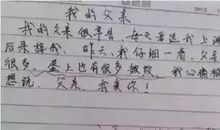 DATE
我的父亲
我的父亲很辛苦,每天要送我上
后来接我,昨天,我仔细一看,父亲
很多,脸上也有很多皱纹,我心
想说,父亲,我爱你!